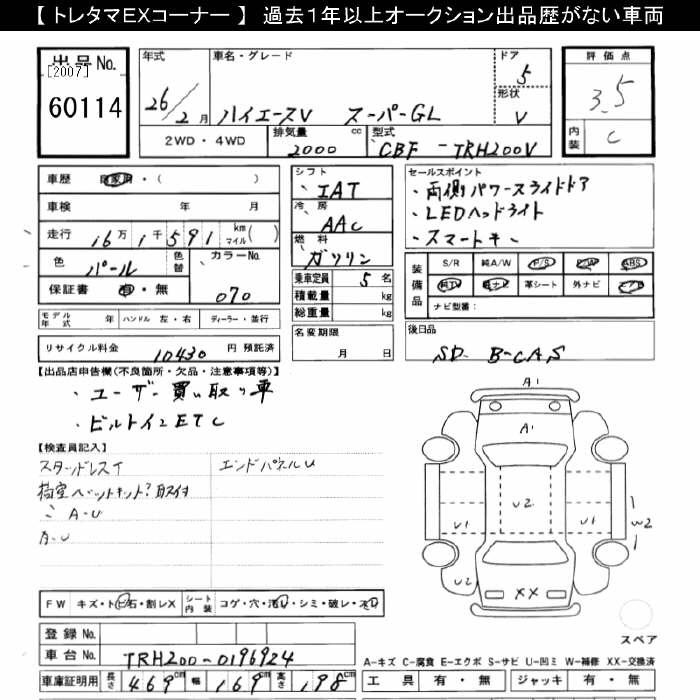 【 トレタマEXコーナー 】 過去１年以上オークション出品歴がない車両
出品No.
[2007]
60114
年式
26/2月
車名・グレード
ハイエースV スーパーGL
ドア
5
形状
V
評価点
3.5
内装
C
2WD・4WD
排気量 cc
2000
型式
CBF - TRH200V
車歴 自家用・( )
車検 年 月
走行 16万1千591 km マイル( )
色 パール 色替
カラーNo. 070
保証書 有・無
シフト
IAT
冷房
AAC
燃料
ガソリン
乗車定員 5名
積載量 kg
総重量 kg
セールスポイント
・両側パワースライドドア
・LEDヘッドライト
・スマートキー
装備品
S/R 純A/W P/S P/W ABS
純TV 純ナビ 革シート 外ナビ エアB
ナビ型番：
モデル年式 年 ハンドル 左・右 ディーラー・並行
リサイクル料金 10430 円 預託済
名変期限
月 日
後日品
SD. B-CAS
【出品店申告欄(不良箇所・欠品・注意事項等)】
・ユーザー買い取り車
・ビルトインETC
【検査員記入】
スタッドレスT
エンドパネルU
荷室ベットキット?取付
A-U
A-U
A1
A1
U2
U1
U1
W2
U2
XX
FW キズ・トビ石・割レX
シート内装 コゲ・穴・汚レ・シミ・破レ・スレ
スペア
登録No.
車台No. TRH200-0196924
車庫証明用 長さ 469cm 幅 169cm 高さ 198cm
A-キズ C-腐食 E-エクボ S-サビ U-凹ミ W-補修 XX-交換済
工具 有・無 ジャッキ 有・無